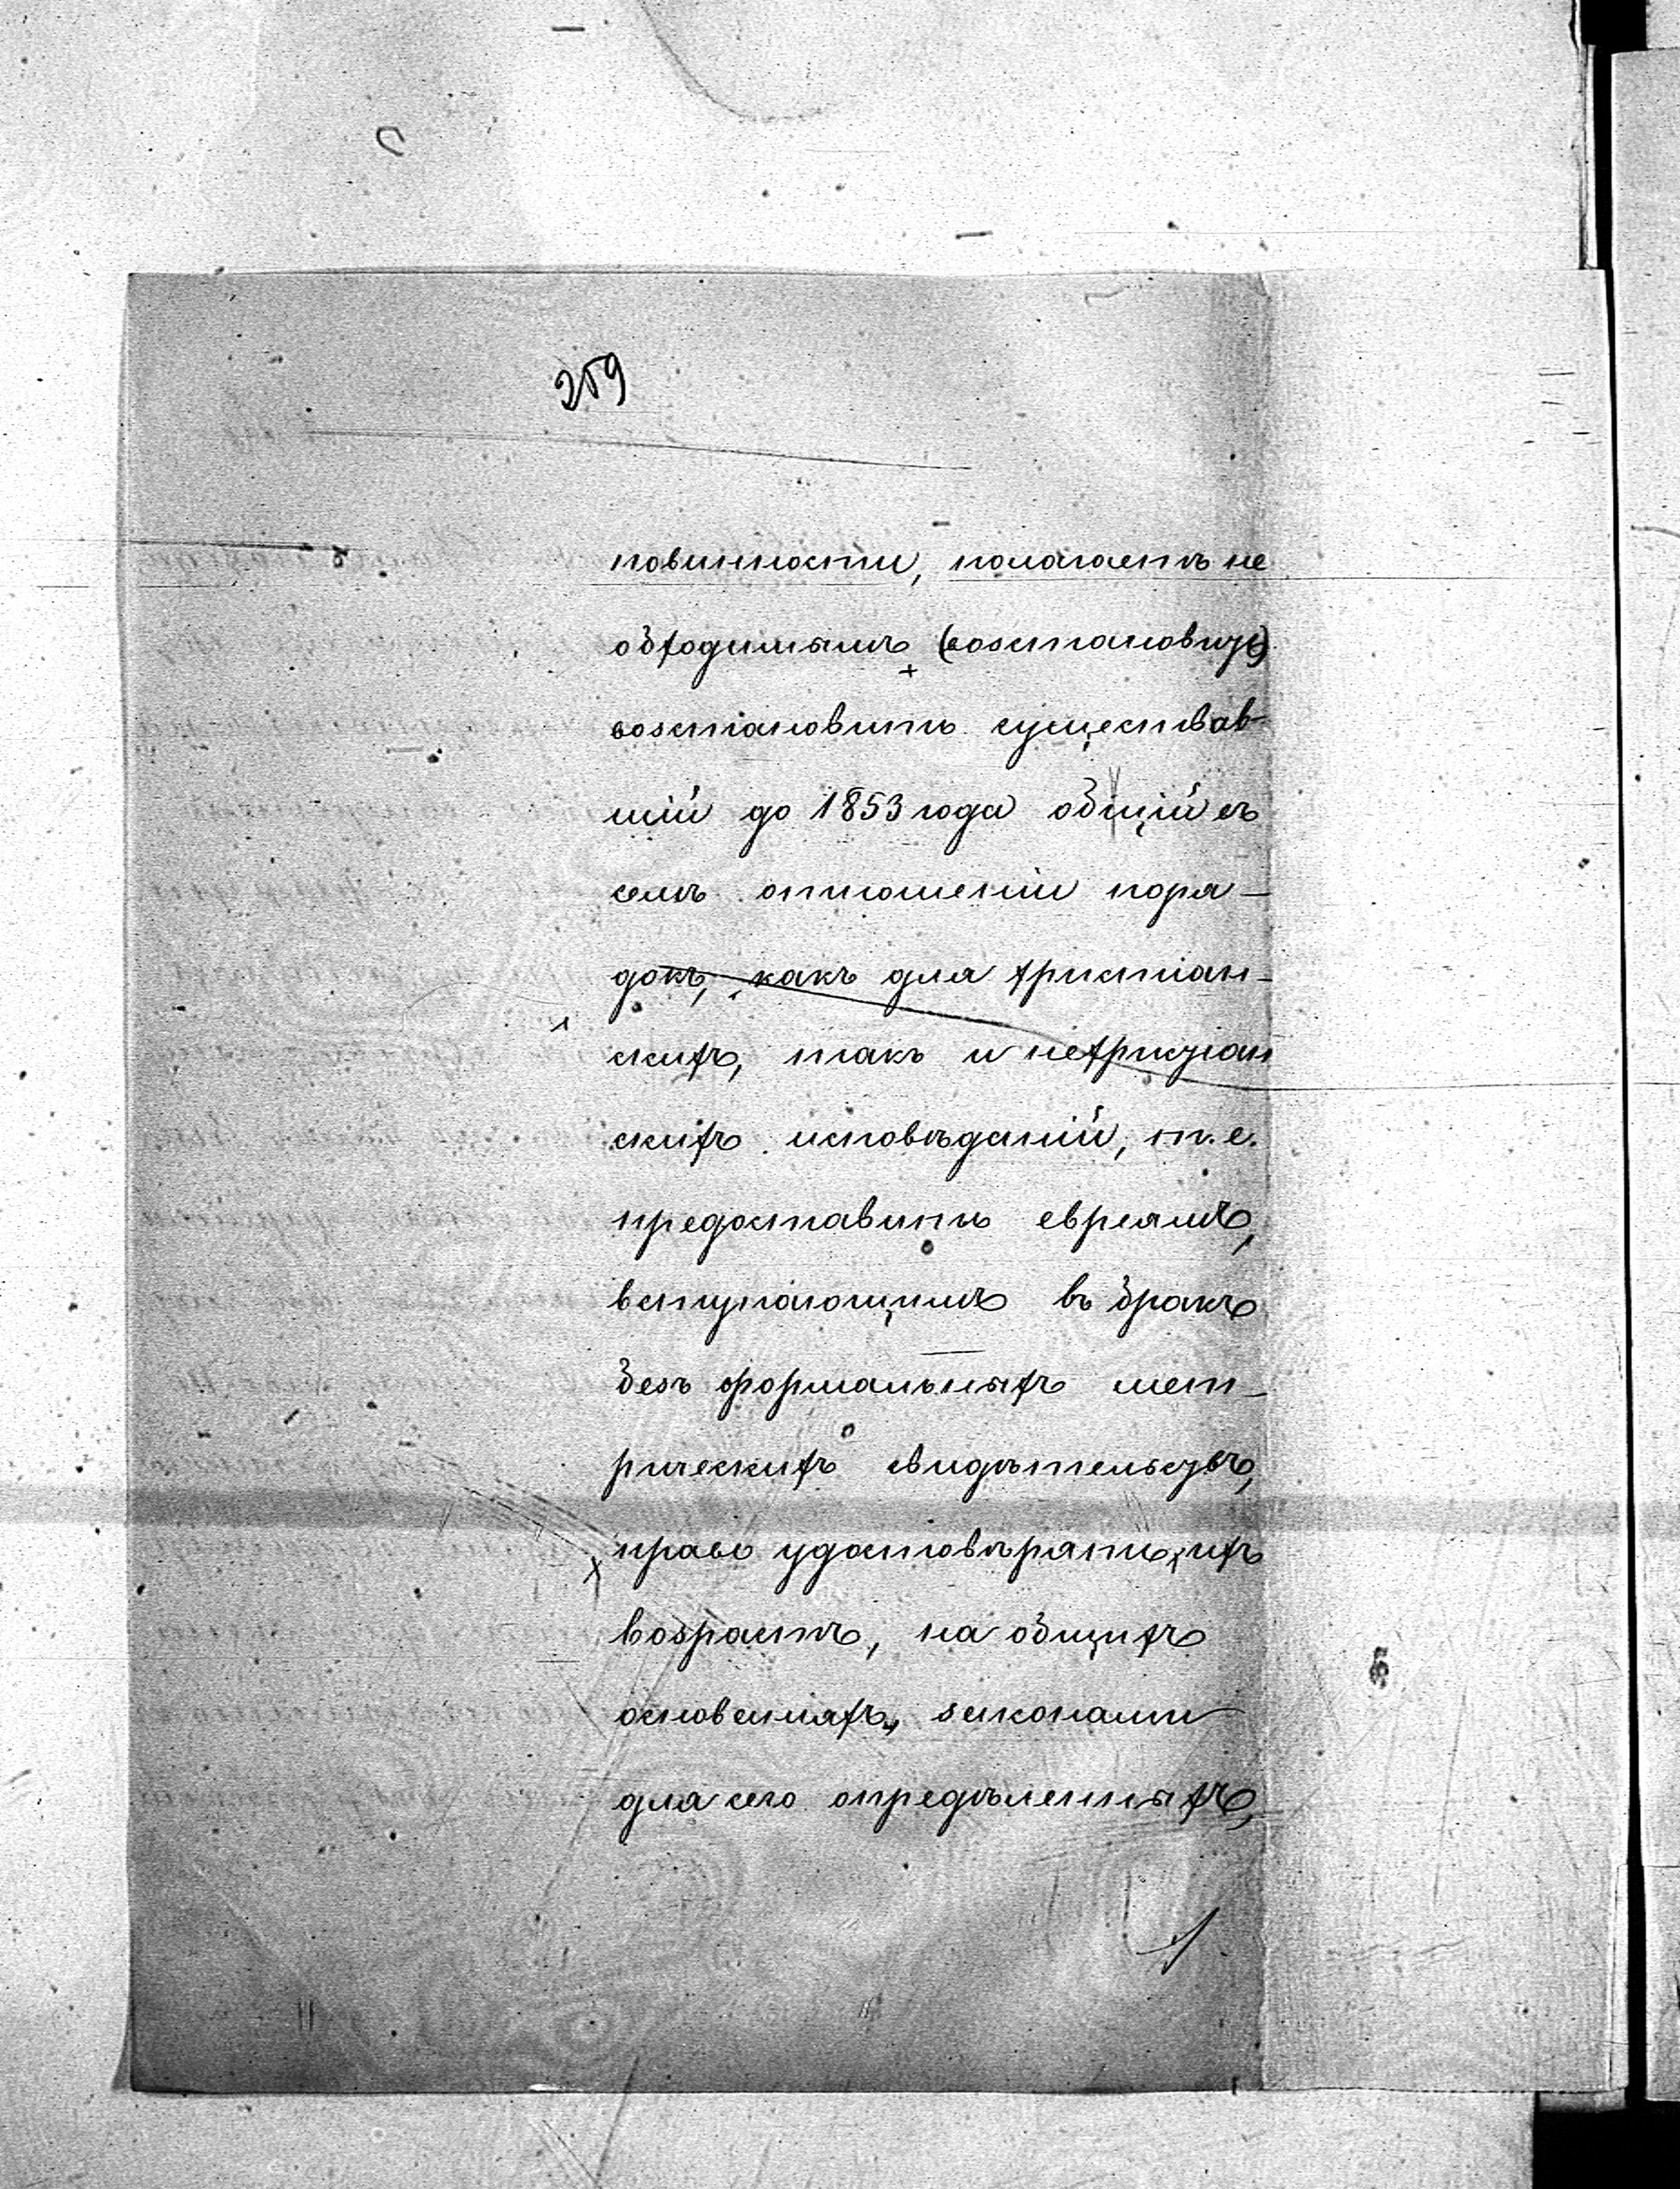 259
повинности, полагаетъ не
обходимымъ (возстановить)
возстановить существовав-
шій до 1853 года общій въ
семъ отношеніи поря-
докъ, какъ для христіан-
скихъ, такъ и нехристіан
скихъ исповѣданій, т.е.
предоставить евреямъ,
вступающимъ въ бракъ
безъ формальныхъ мет-
рическихъ свидѣтельствъ,
право удостовѣрять ихъ
возрастъ, на общихъ
основаніяхъ, законами
для сего опредѣленныхъ,